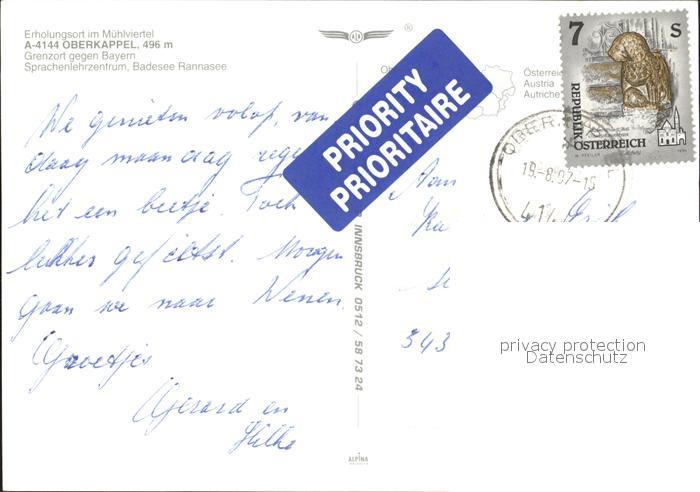 Erholungsort im Mühlviertel
A-4144 OBERKAPPEL, 496 m
Grenzort gegen Bayern
Sprachenlehrzentrum, Badesee Rannasee
We genieten volop, van
daag maandag rege
het een beetje. Toch
lekker gefietst. Morgen
gaan we naar Wenen.
Groetjes
Gerard en
Hilke
PRIORITY
PRIORITAIRE
INNSBRUCK 0512 / 58 73 24
ALPINA
Österreic
Austria
Autriche
7 S
REPUBLIK
ÖSTERREICH
OBER
19.-8.97-16
414
Fam
343
privacy protection
Datenschutz